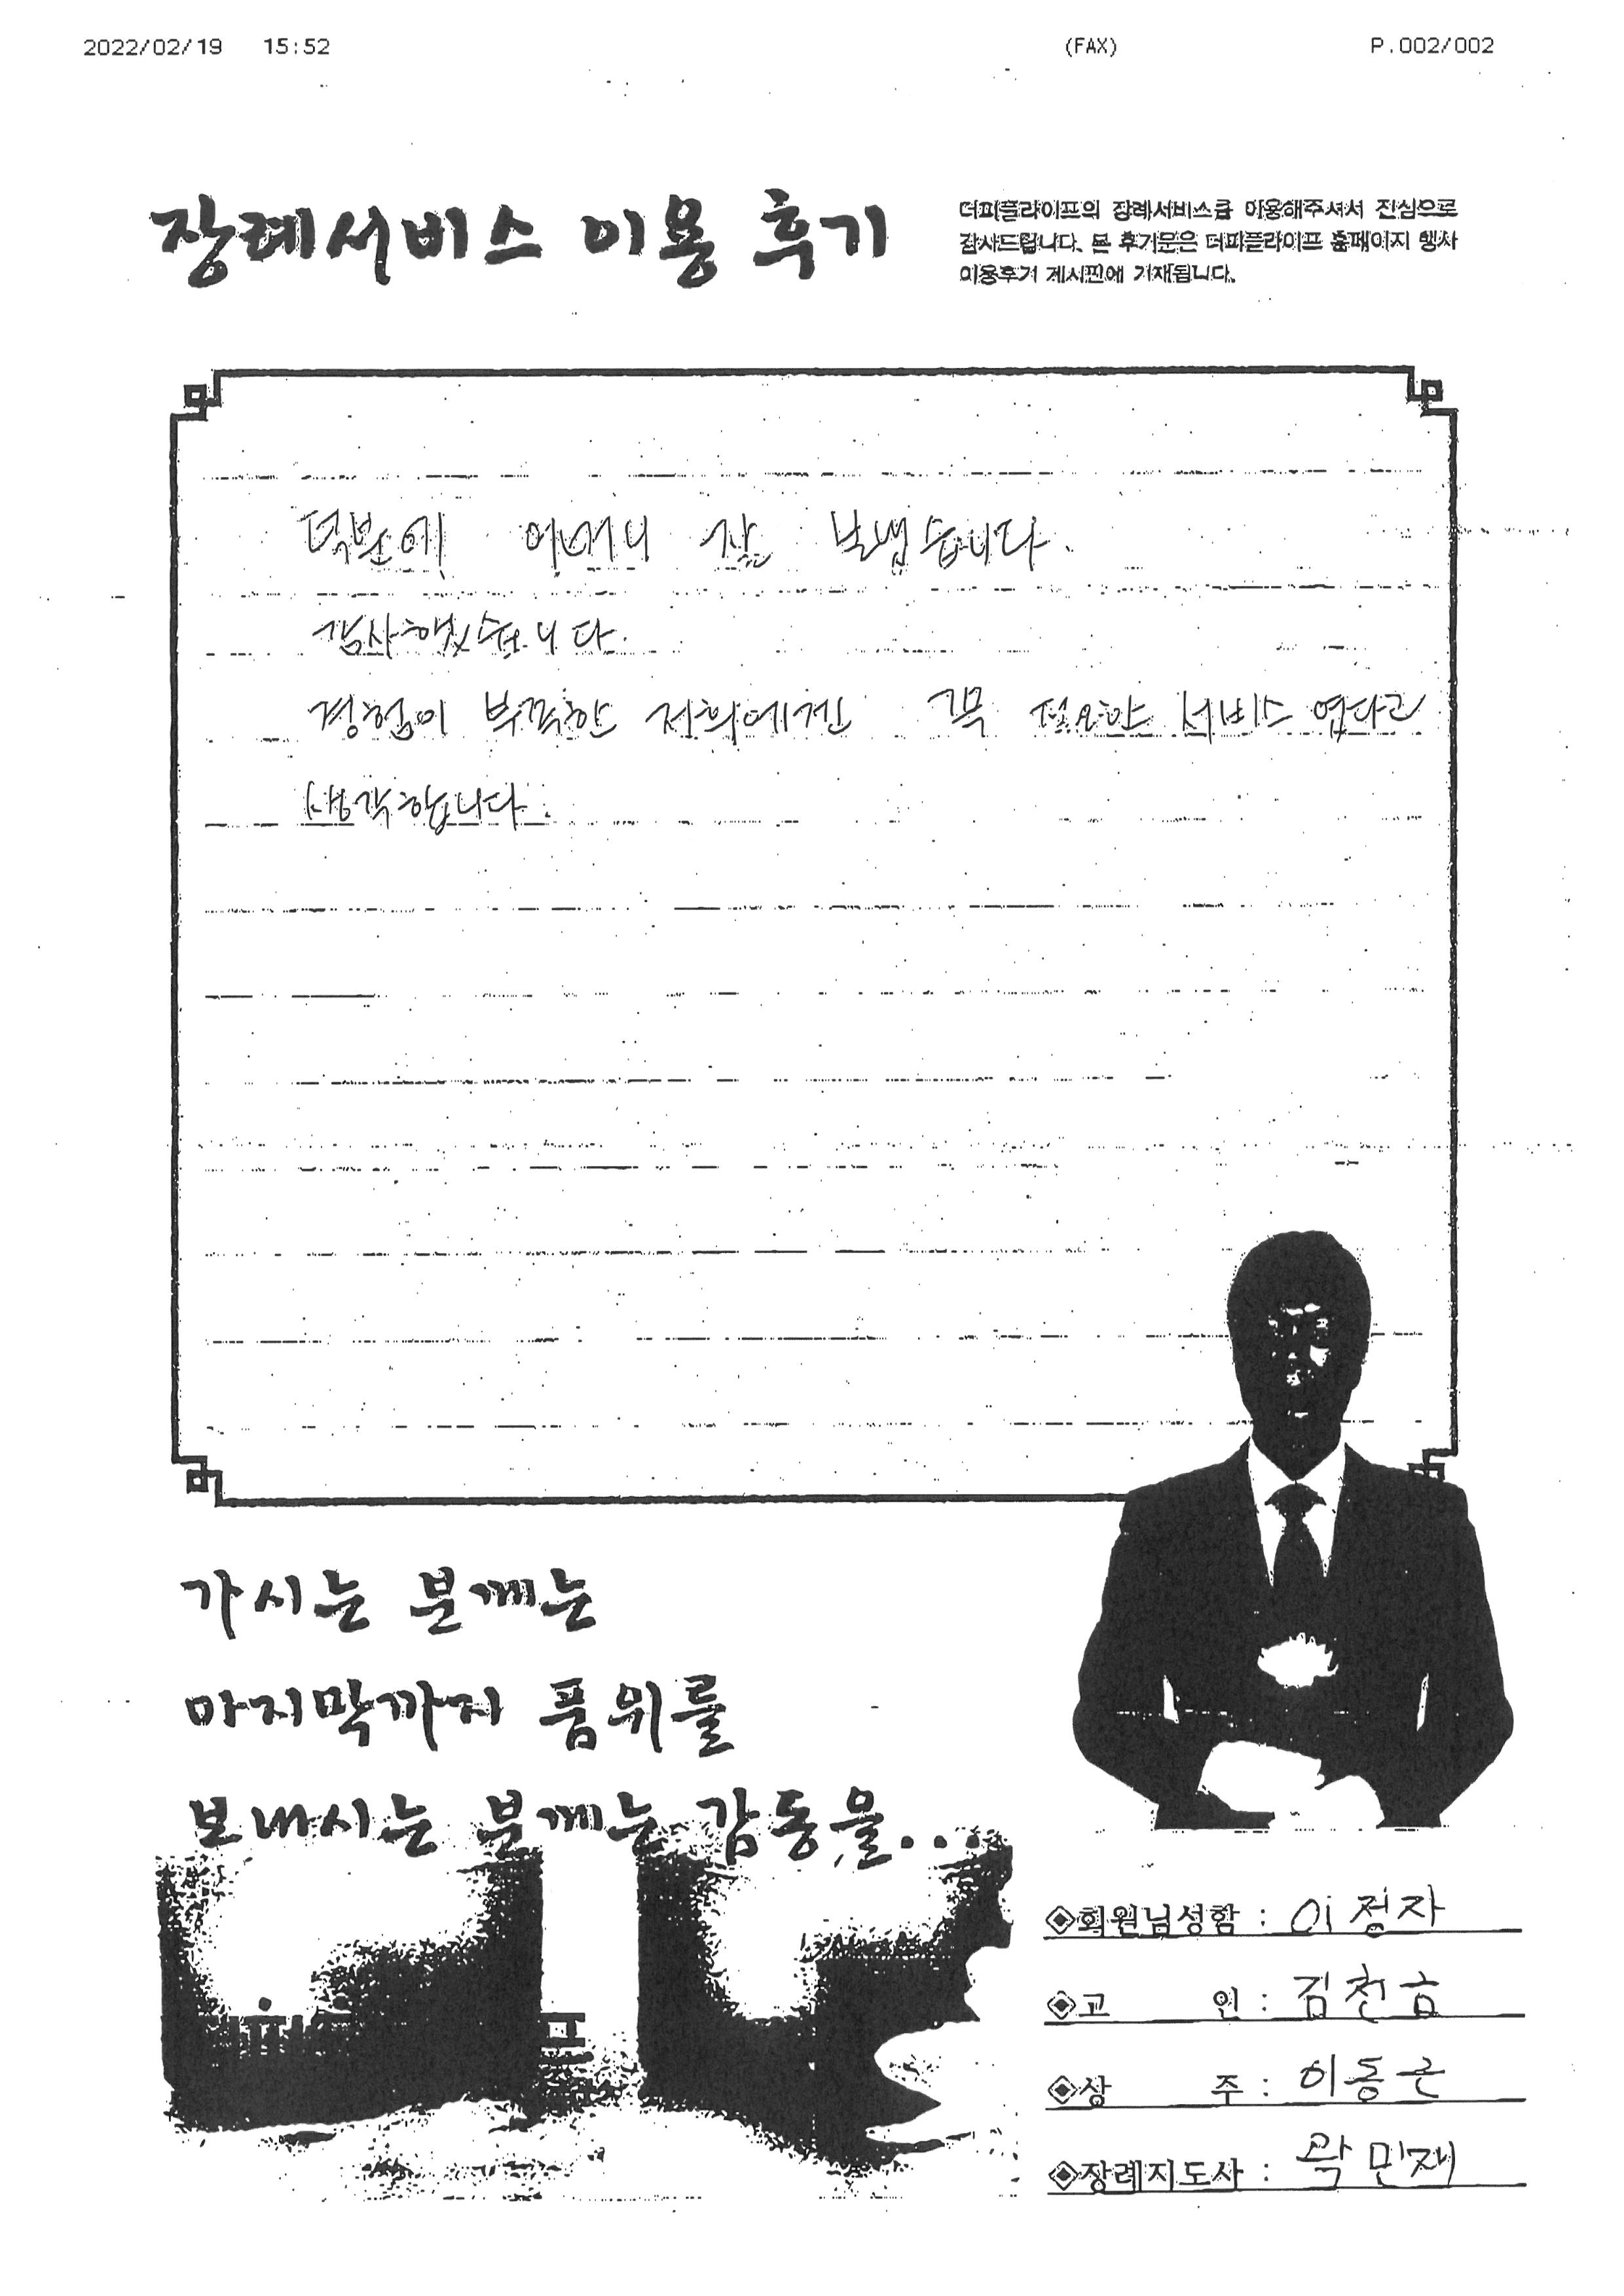 2022/02/19 15:52 (FAX) P.002/002
장례서비스 이용 후기
더피플라이프의 장례서비스를 이용해주셔서 진심으로
감사드립니다. 본 후기문은 더피플라이프 홈페이지 행사
이용후기 게시판에 기재됩니다.
덕분에 어머니 잘 보냈습니다.
감사했습니다.
경험이 부족한 저희에겐 꼭 필요한 서비스 였다고
생각합니다.
가시는 분께는
마지막까지 품위를
보내시는 분께는 감동을...
회원님성함 : 이정자
고 인 : 김천
상 주 : 이동근
장례지도사 : 곽민재